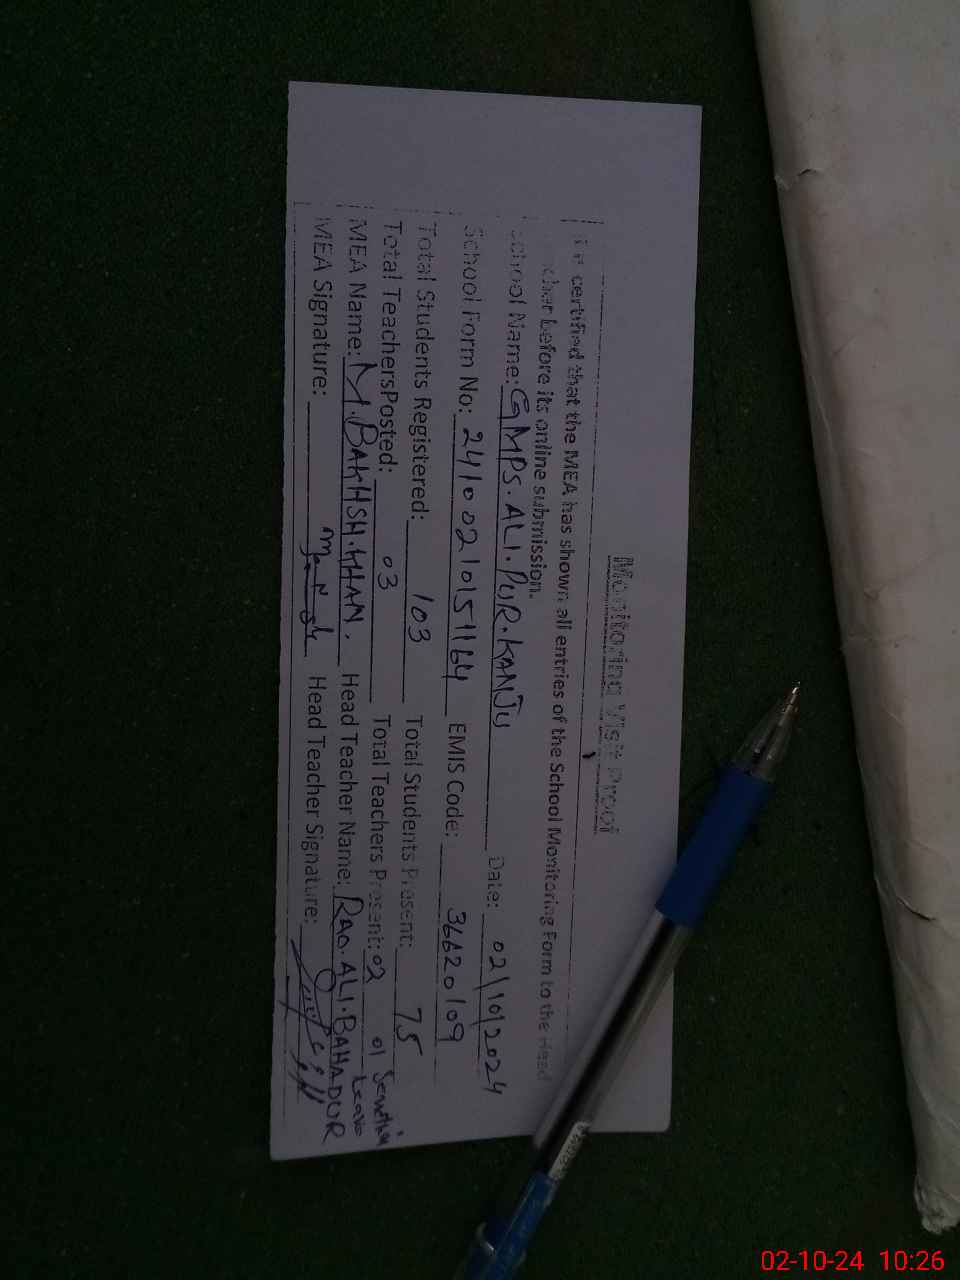 Monitoring Visit Proof
It is certified that the MEA has shown all entries of the School Monitoring Form to the Head
Teacher before its online submission.
School Name: GMPS. ALI. PUR. KANJU Date: 02/10/2024
School Form No: 24100210151164 EMIS Code: 36620109
Total Students Registered: 103 Total Students Present: 75
Total TeachersPosted: 03 Total Teachers Present: 02 01 Leave
MEA Name: M. BAKHSH. KHAN. Head Teacher Name: RAO. ALI. BAHADUR
MEA Signature: Head Teacher Signature:
02-10-24 10:26